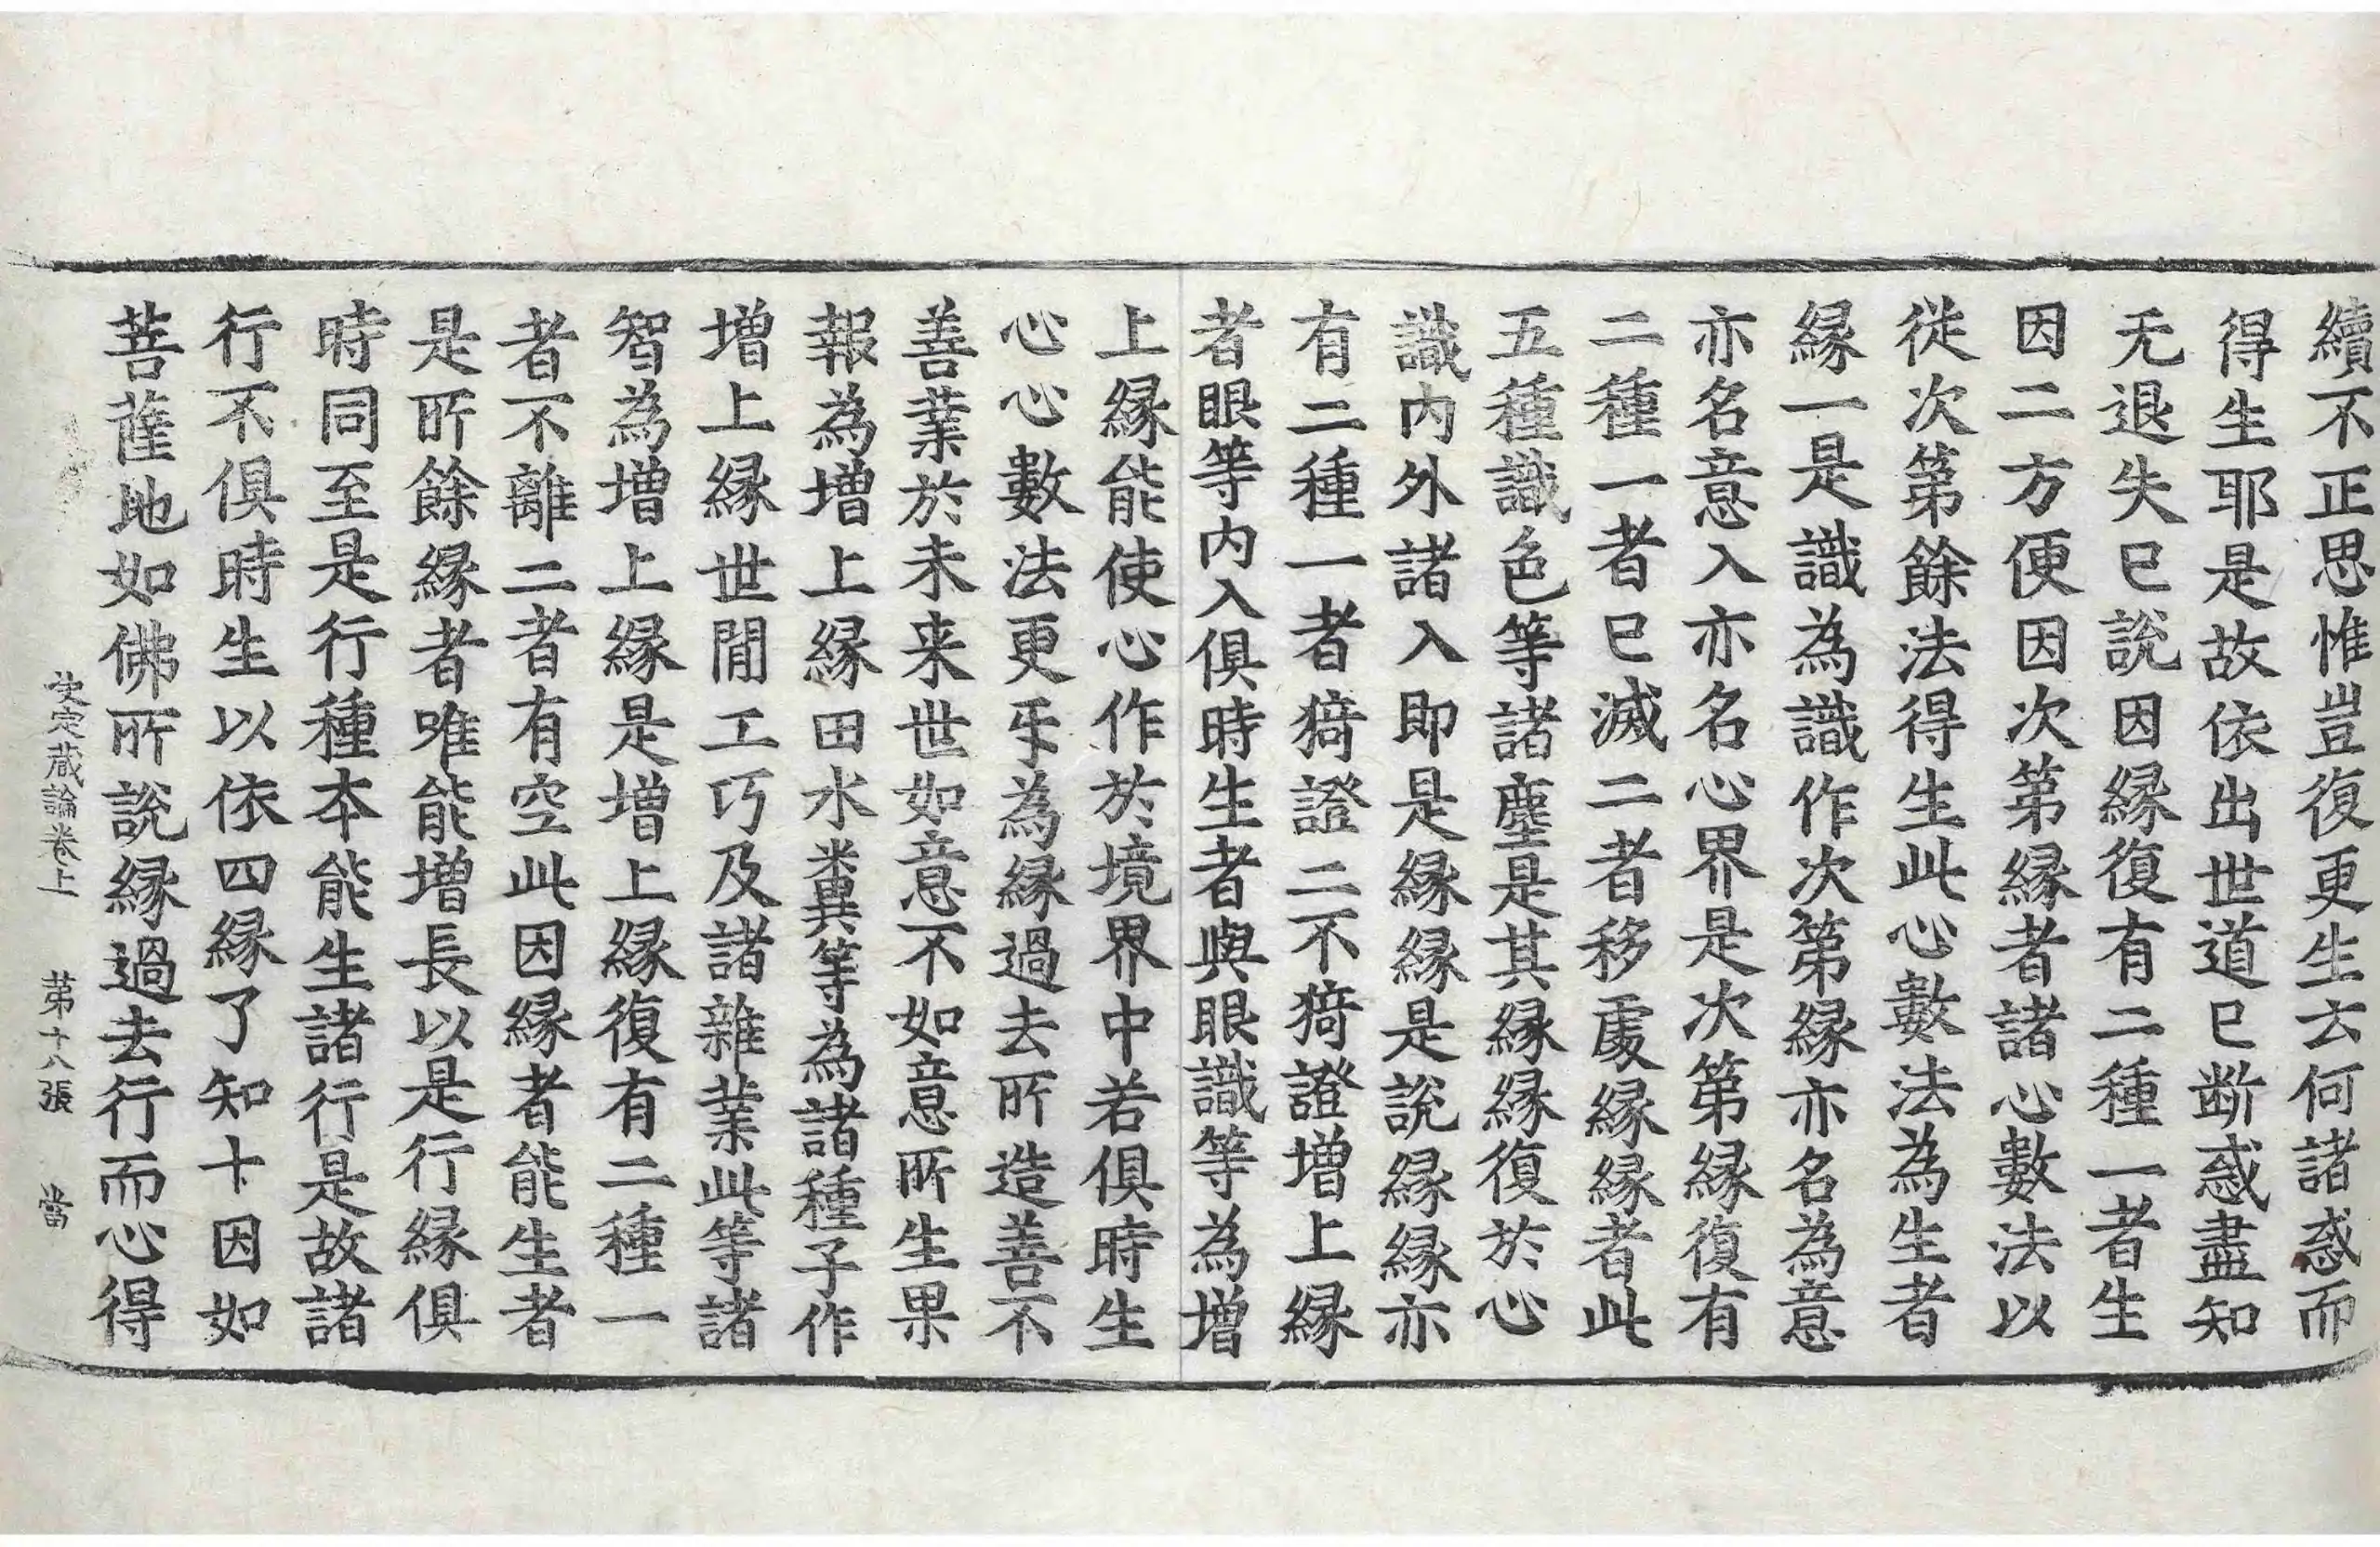 續不正思惟豈復更生云何諸惑而
得生耶是故依出世道已断惑盡知
无退失已說因縁復有二種一者生
因二方便因次第縁者諸心數法以
從次第餘法得生此心數法為生者
縁一是識為識作次第縁亦名為意
亦名意入亦名心界是次第縁復有
二種一者已滅二者移處縁縁者此
五種識色等諸塵是其縁縁復於心
識内外諸入即是縁縁是說縁縁亦
有二種一者猗證二不猗證增上縁
者眼等内入俱時生者與眼識等為增
上縁能使心作於境界中若俱時生
心心數法更㸦為縁過去所造善不
善業於未来世如意不如意所生果
報為增上縁田水糞等為諸種子作
增上縁世間工巧及諸雜業此等諸
智為增上縁是增上縁復有二種一
者不離二者有空此因縁者能生者
是所餘縁者唯能增長以是行縁俱
時同至是行種本能生諸行是故諸
行不俱時生以依四縁了知十因如
菩薩地如佛所說縁過去行而心得
決定蔵論卷上　第十八張　當